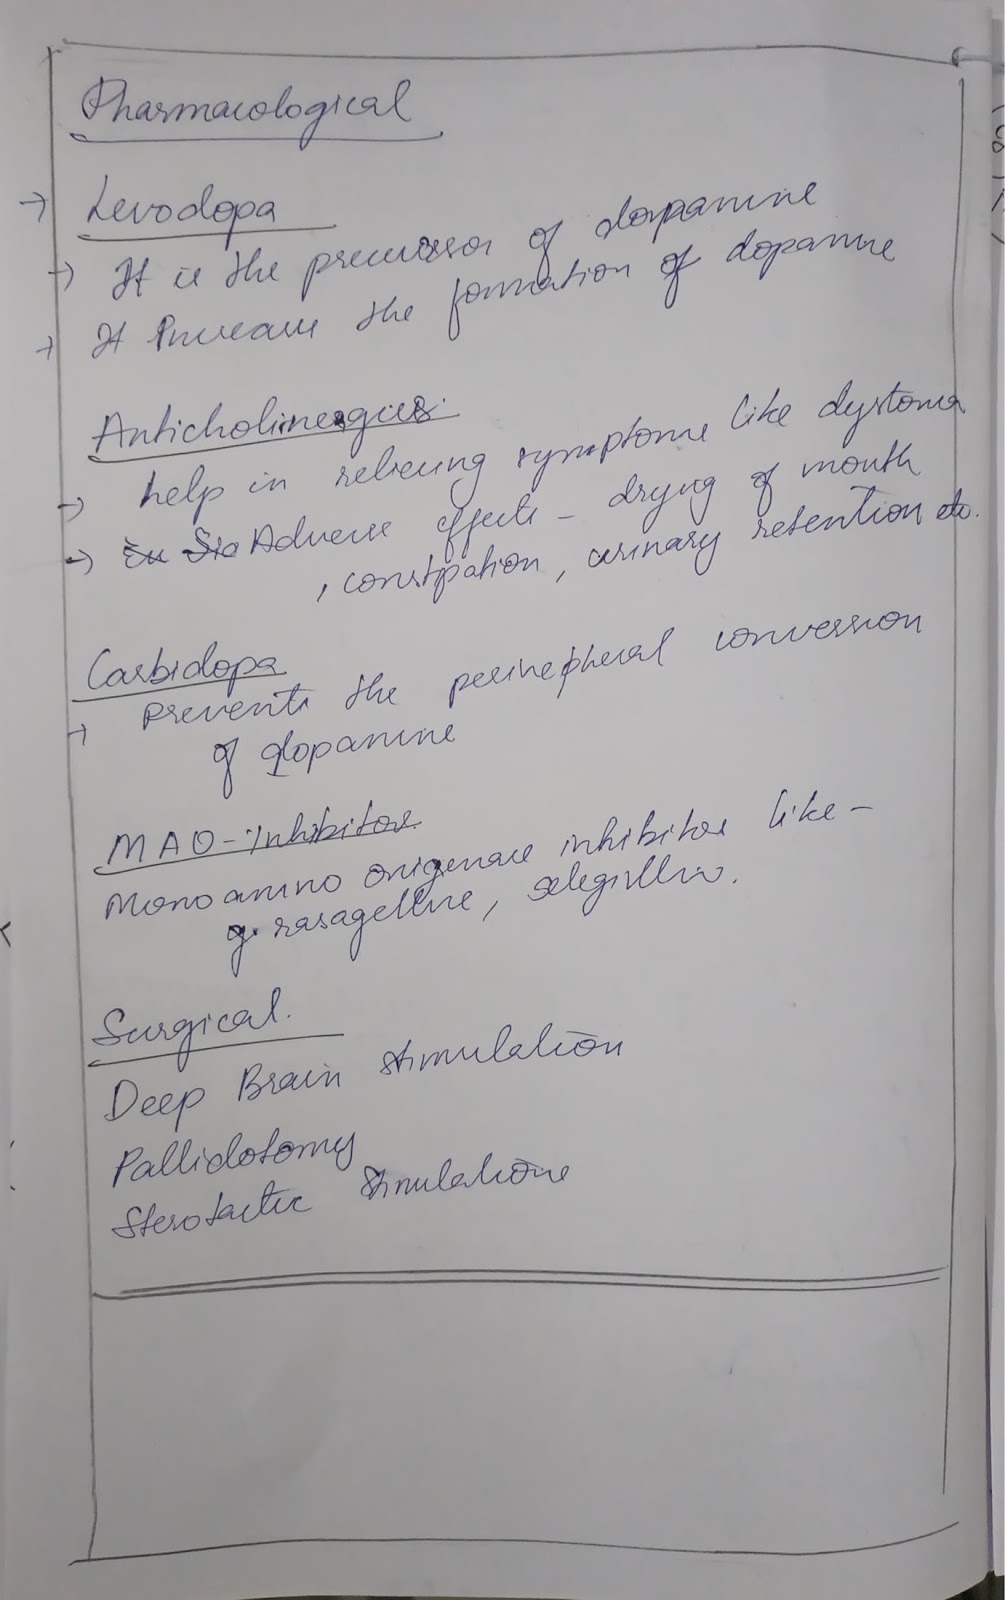 Pharmacological
→ Levodopa
→ It is the precussor of dopamine
→ It Increase the formation of dopamine
Anticholinergics.
→ help in relieving symptoms like dystonia
→ Adverse effects - drying of mouth
, constipation, urinary retention etc.
Carbidopa
→ prevents the peripheral conversion
of dopamine
MAO-inhibitor
Monoamino oxigenase inhibitor like -
rasagelline, selegilline.
Surgical.
Deep Brain stimulation
Pallidotomy
Sterotactic stimulations